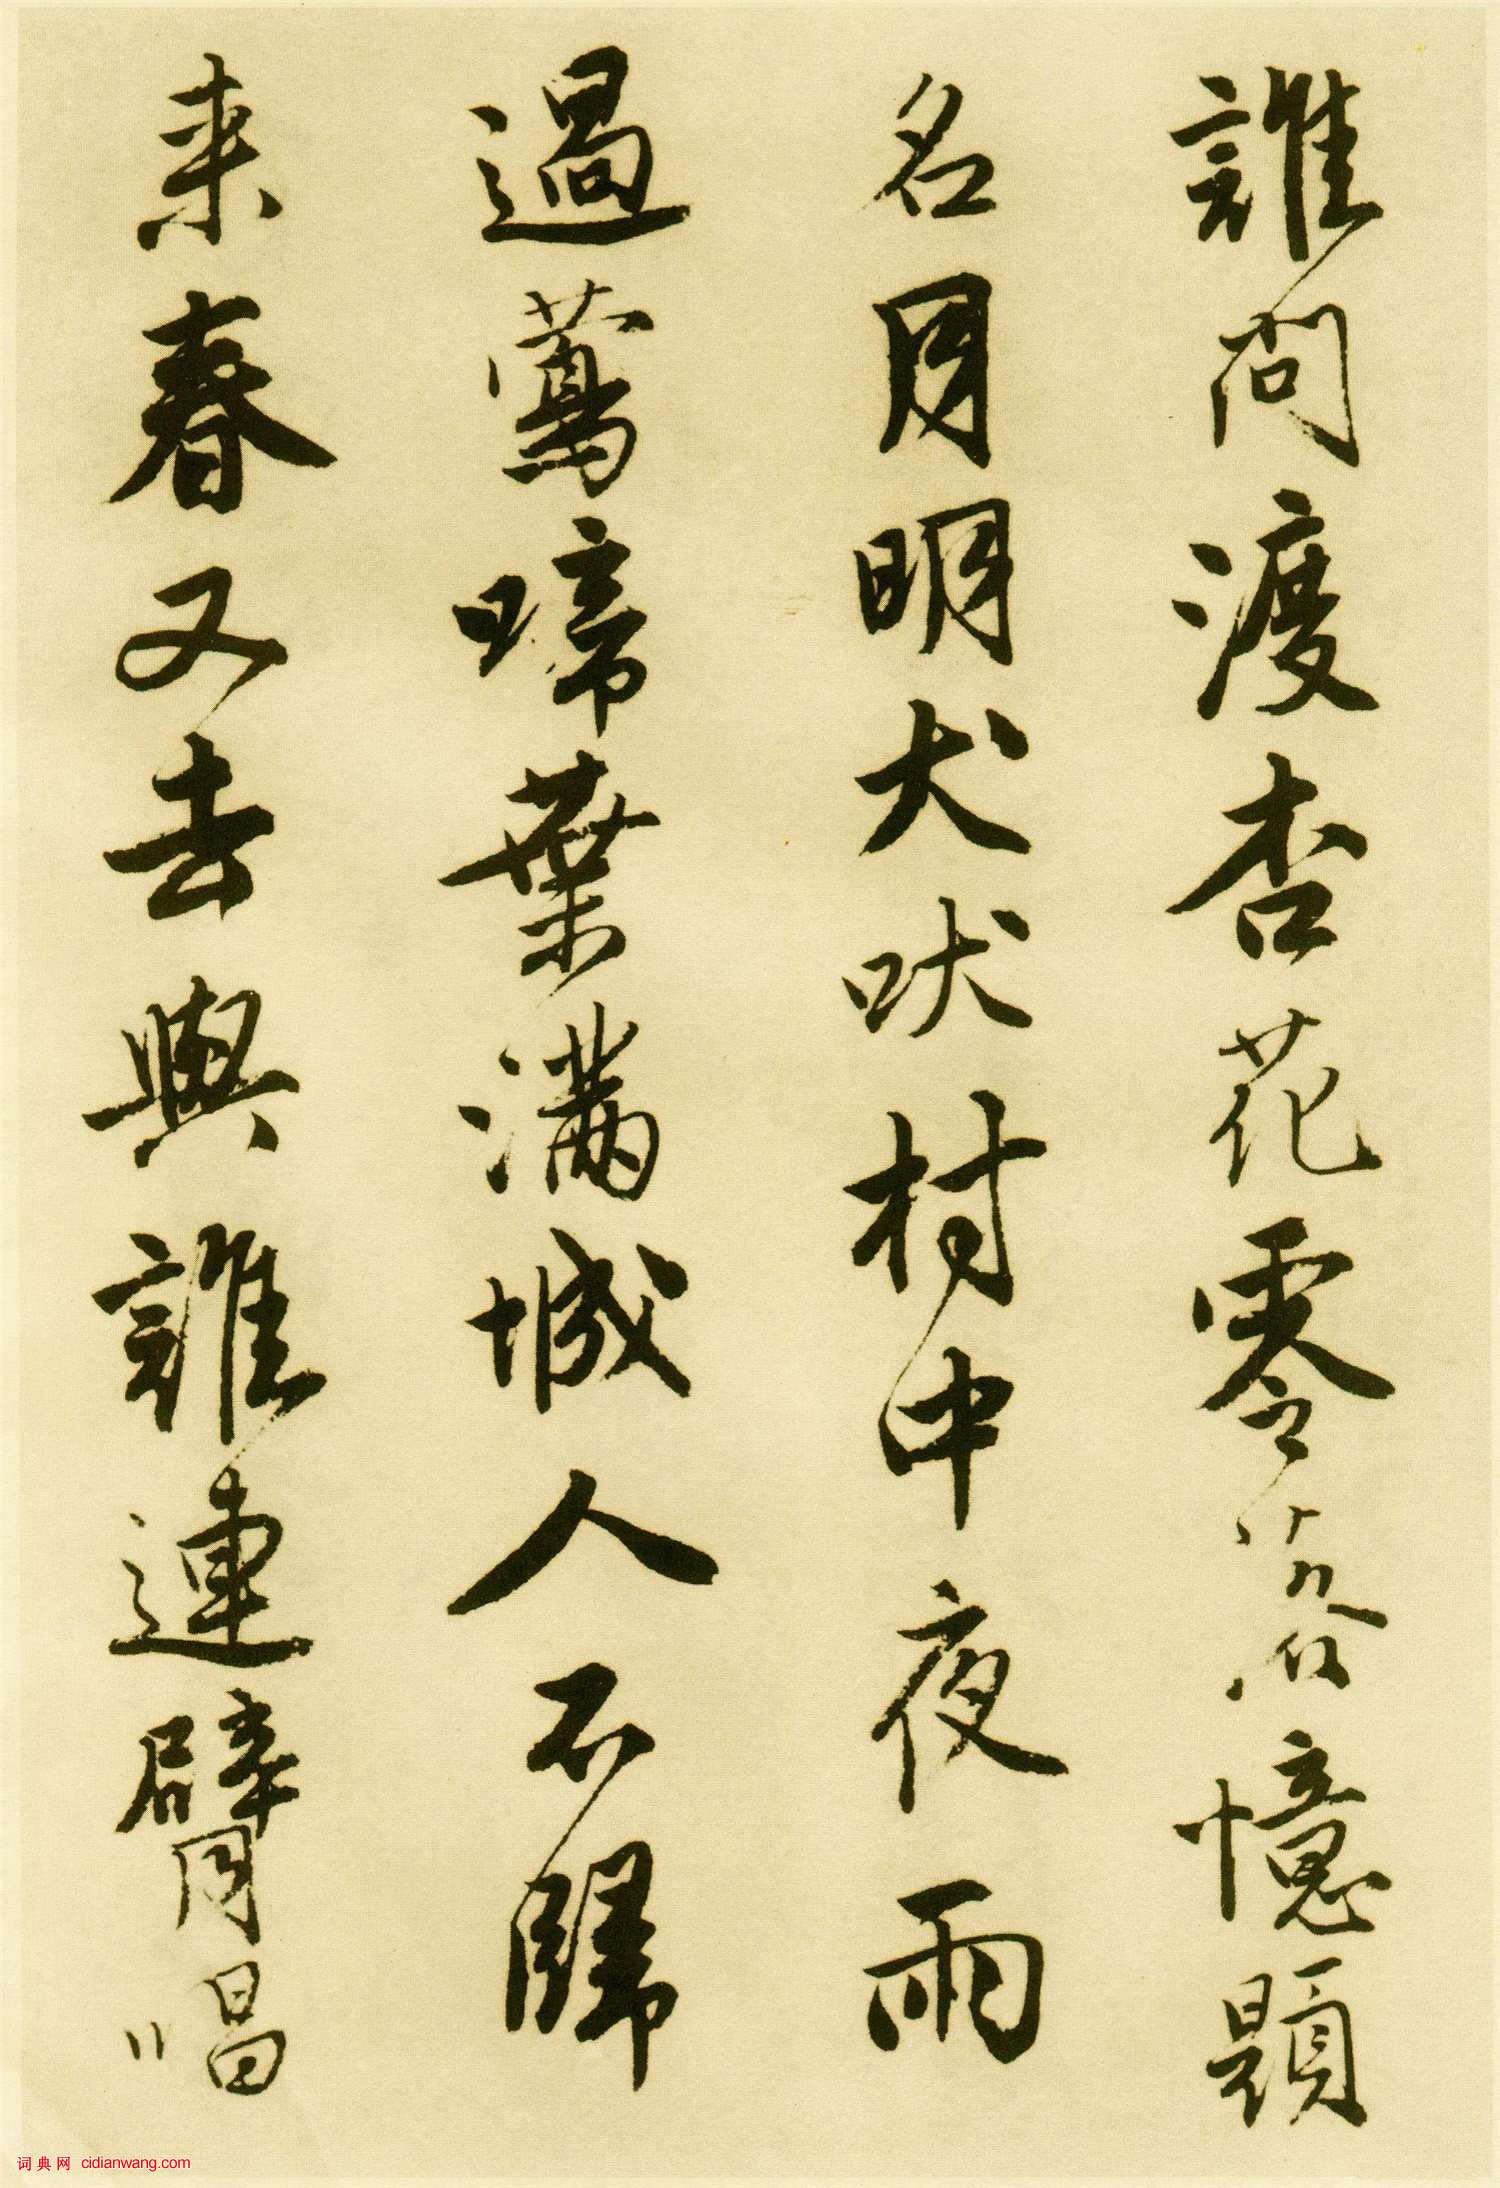 誰問渡杏花零落憶題
名月明犬吠村中夜雨
過鶯啼葉滿城人不歸
来春又去與誰連臂唱
词典网 cidianwang.com